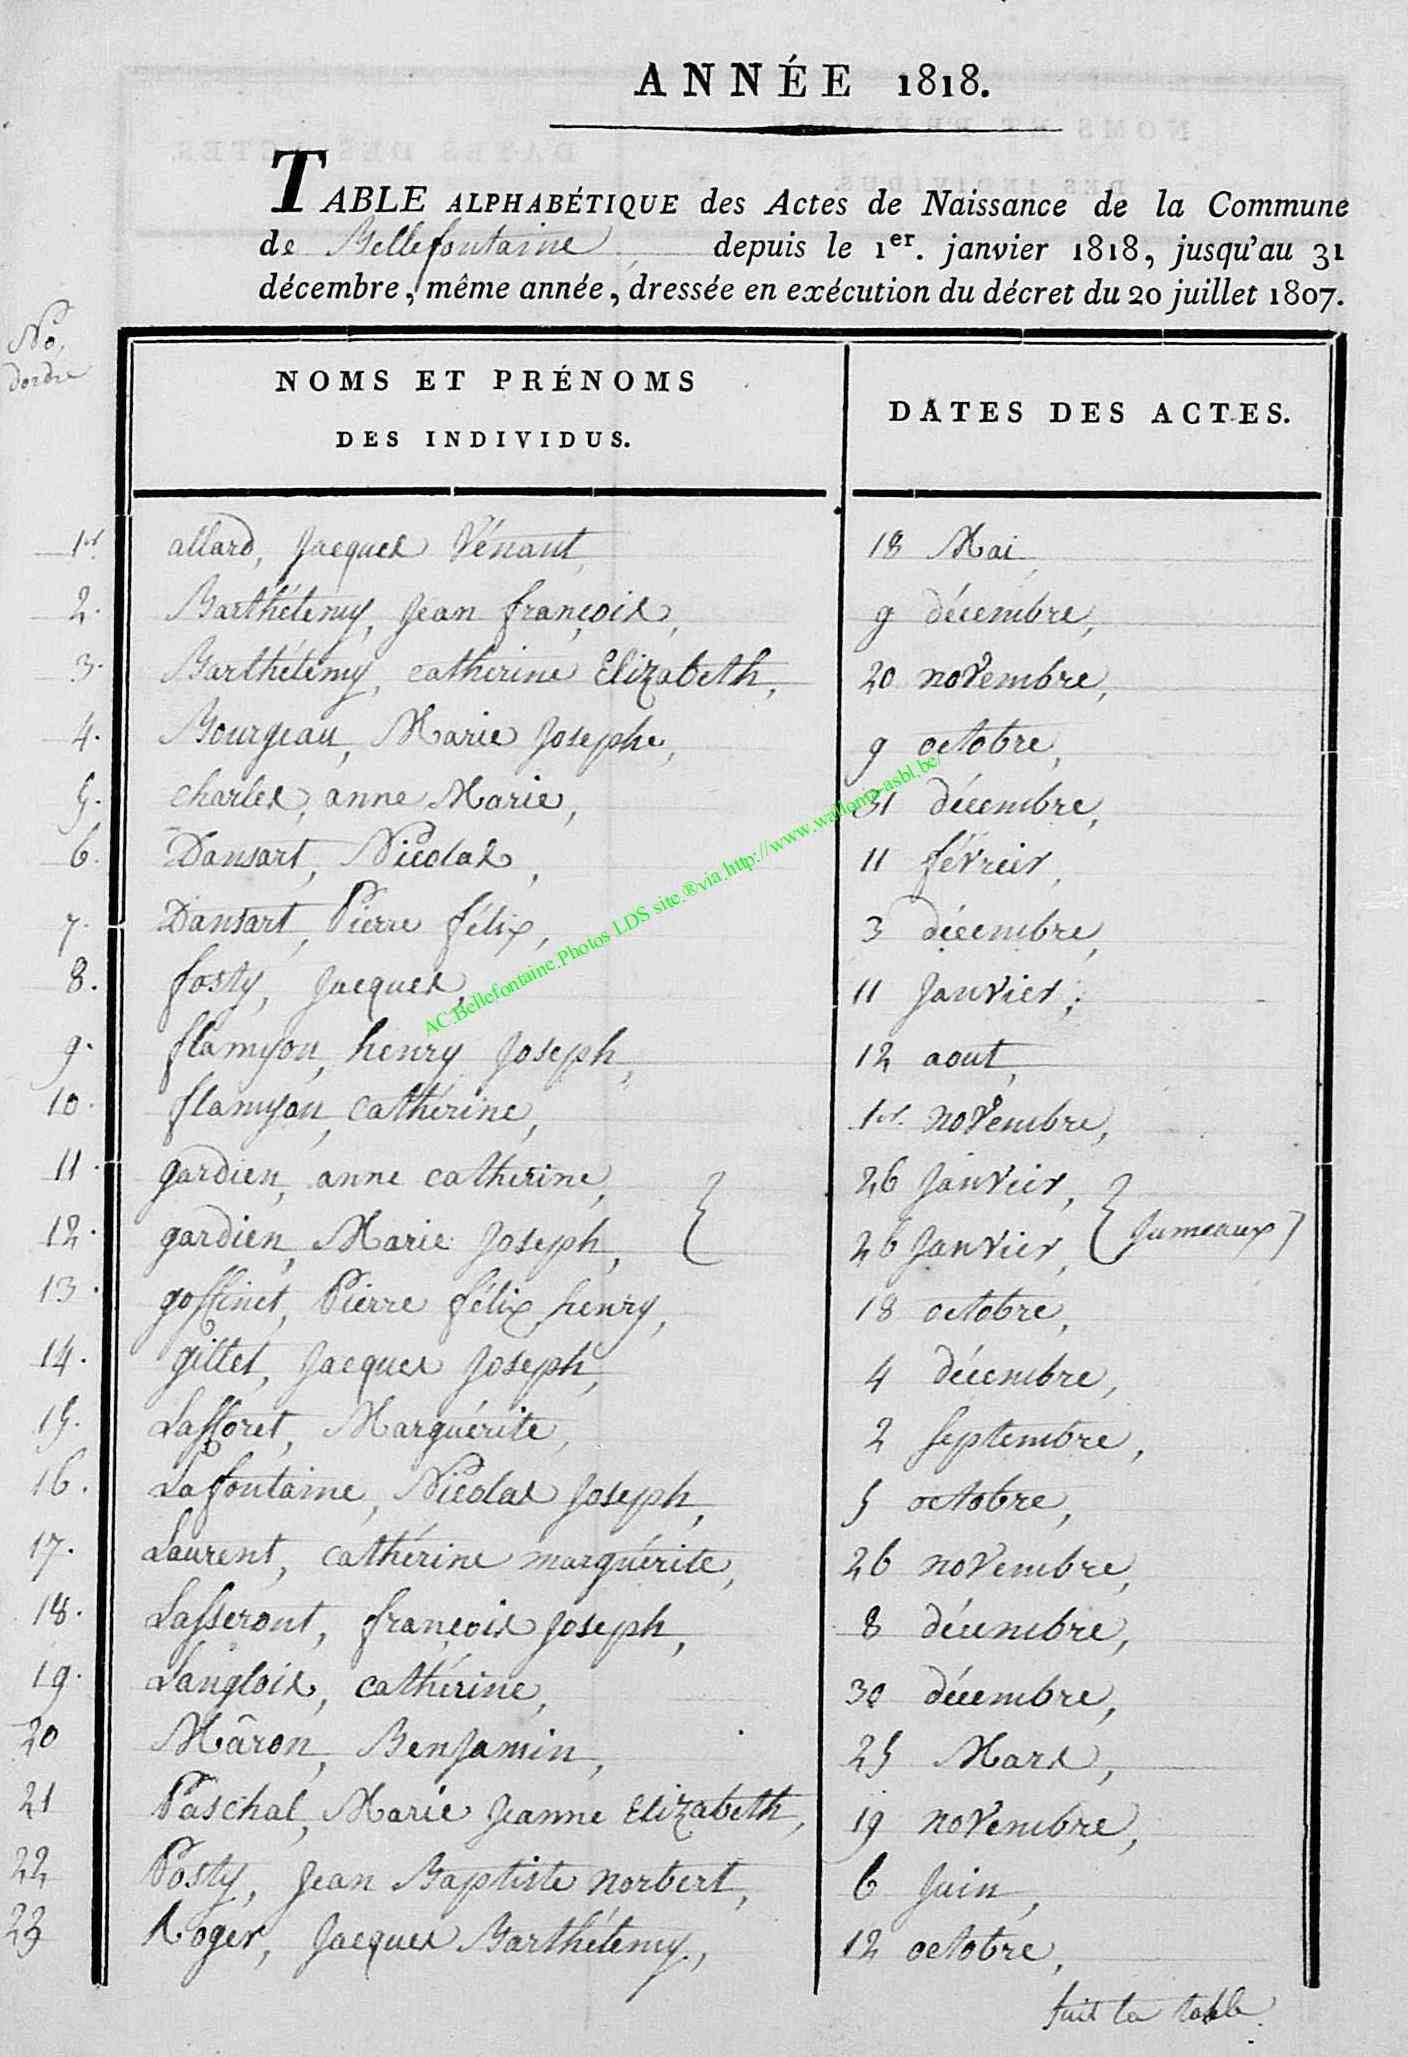 ANNÉE 1818.
TABLE ALPHABÉTIQUE des Actes de Naissance de la Commune
de Bellefontaine depuis le 1er. janvier 1818, jusqu'au 31
décembre, même année, dressée en exécution du décret du 20 juillet 1807.
No.
d'ordre
NOMS ET PRÉNOMS
DES INDIVIDUS.
DATES DES ACTES.
1er. allard, Jacques Vénant, 18 Mai,
2. Barthélemy, Jean françois, 9 décembre,
3. Barthélemy, catherine Elizabeth, 20 novembre,
4. Bourgeau, Marie Josephe, 9 octobre,
5. charles, anne Marie, 31 décembre,
6. Dansart, Nicolas, 11 février,
7. Dansart, Pierre félix, 3 décembre,
8. fosty, Jacques, 11 Janvier,
9. flamyon, henry Joseph, 12 aout,
10. flamyon, cathérine, 1er. novembre,
11. gardien, anne catherine, 26 Janvier,
12. gardien, Marie Joseph, 26 Janvier, Jumeaux
13. goffinet, Pierre félix henry, 18 octobre,
14. gillet, Jacques Joseph, 4 décembre,
15. Lafforet, Marguérite, 2 Septembre,
16. Lafontaine, Nicolas Joseph, 5 octobre,
17. Laurent, cathérine marguérite, 26 novembre,
18. Lasseront, françois Joseph, 8 décembre,
19. Langlois, cathérine, 30 décembre,
20 Mâron, Benjamin, 25 Mars,
21 Paschal, Marie Jeanne Elizabeth, 19 novembre,
22 Posty, Jean Baptiste norbert, 6 Juin,
23 Roger, Jacques Barthélemy, 12 octobre,
suit la table.
AC.Bellefontaine.Photos LDS site.®via.http://www.wallonia-asbl.be/